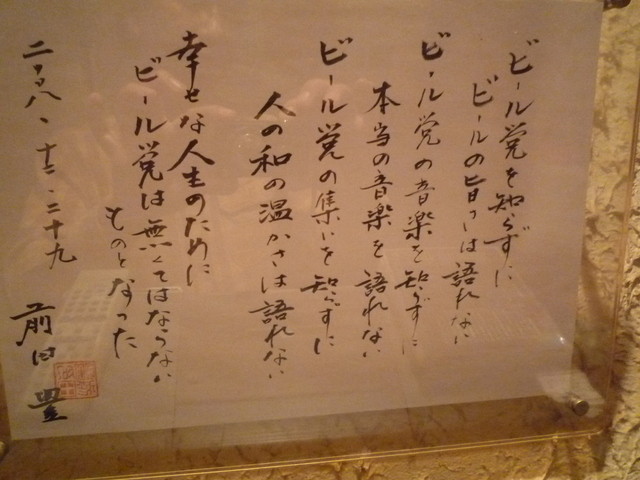 ビール党を知らずに
ビールの旨さは語れない
ビール党の音楽を知らずに
本当の音楽を語れない
ビール党の集いを知らずに
人の和の温かさは語れない
幸せな人生のために
ビール党は無くてはならない
ものとなった
二〇〇八、十二、二十九
前田 豊